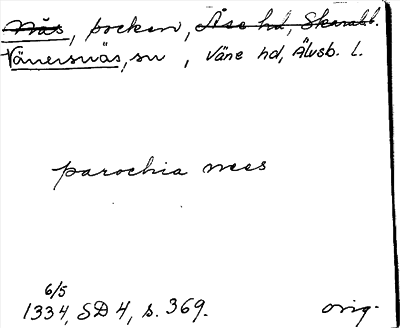 Näs, socken, Åse hd, Skarabl.
Vänersnäs, sn, Väne hd, Älvsb. l.
parochia nees
6/5
1334, SD 4, s. 369. orig.